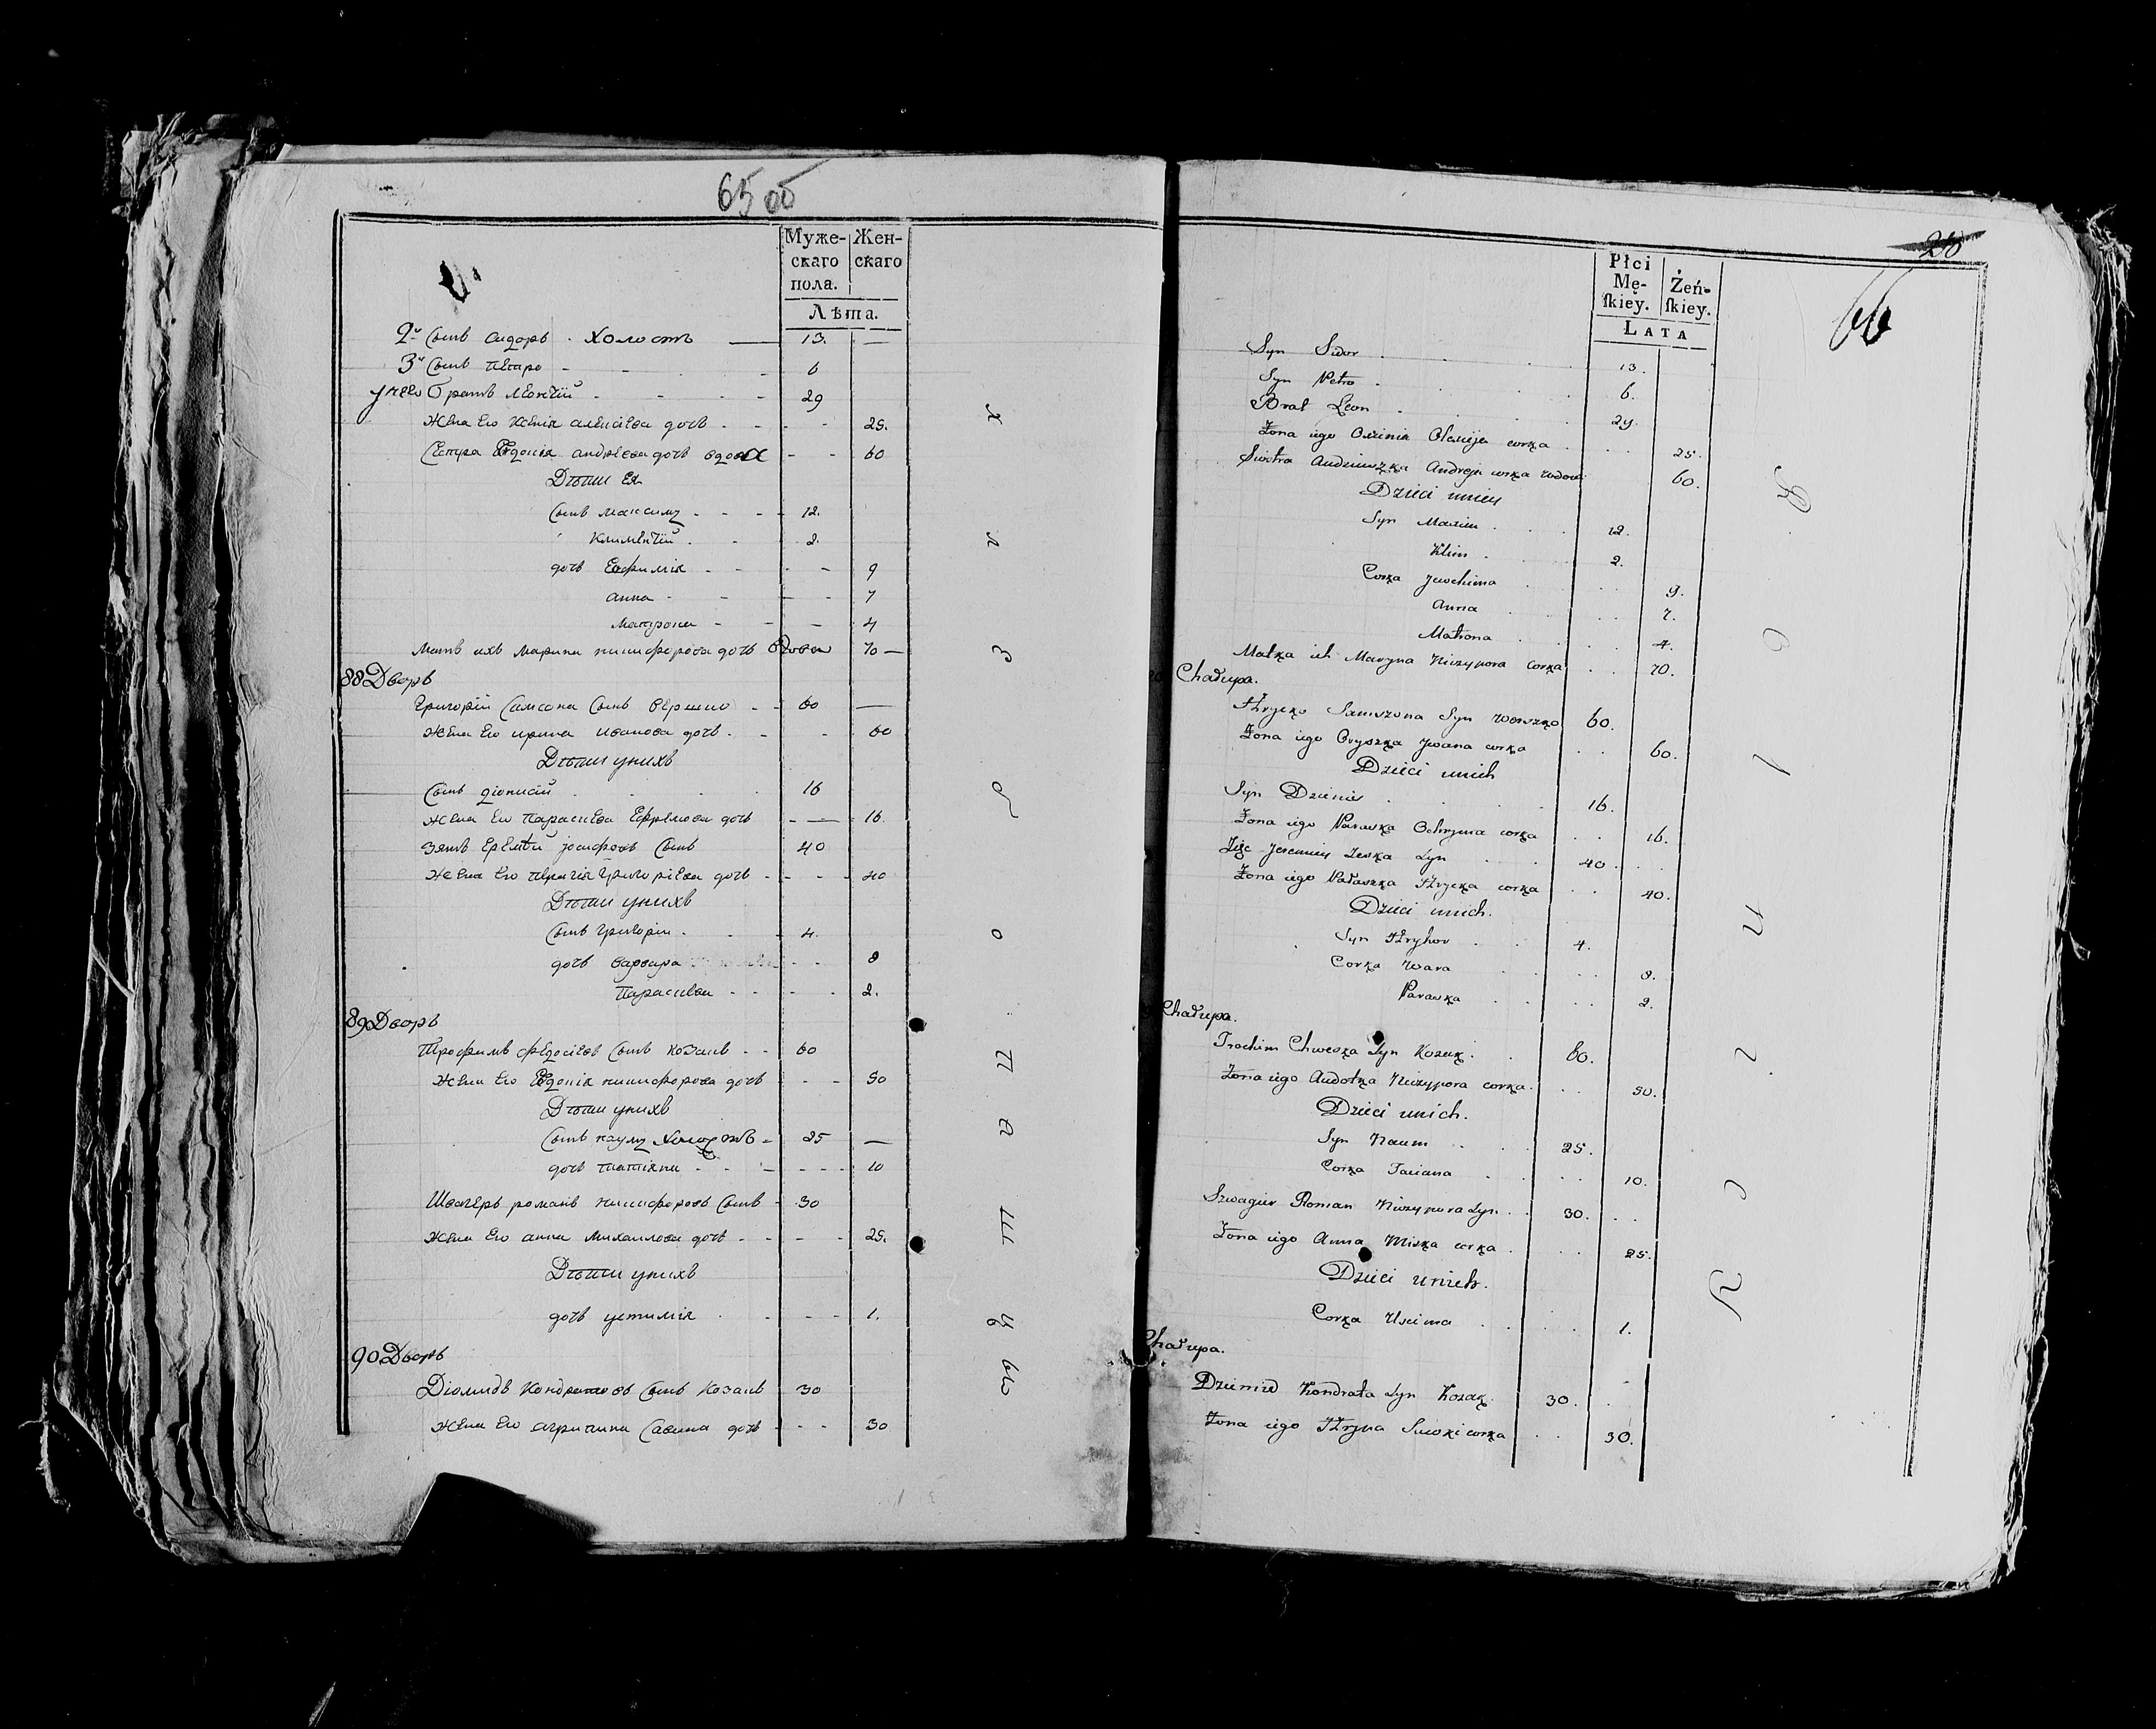 65 об
Муже-
скаго
пола.
Жен-
скаго
Лѣта.
2й Сынъ Сидоръ . холостъ 13.
3й Сынъ Петро 6
у него братъ Леонтий 29
Жена Его Ксения алексиева дочь 25.
Сестра Евдокия андреева дочь вдова 60
Дѣти Ея
Сынъ максимъ 12.
Климентий 2.
дочь Евфимия 9
анна 7
матрона 4
мать ихъ марина никифорова дочь вдова 70
88 Дворъ
Григорий Самсона Сынъ вершко 60
жена Его ирина иванова дочь 60
Дѣти унихъ
Сынъ дионисий 16
жена Его Параскева Ефремова дочь 16.
зять Еремей иосифовъ Сынъ 40
жена Его пелагия григориева дочь 40
Дѣти унихъ
Сынъ григорий 4.
дочь варвара 8
Параскева 2.
89 Дворъ
Трофимъ федосиевъ Сынъ козакъ 60
жена Его Евдокия никифорова дочь 50
Дѣти унихъ
Сынъ наумъ холостъ 25
дочь татияна 10
Швагеръ романъ никифоровъ Сынъ 30
жена Его анна михаилова дочь 25.
Дѣти унихъ
дочь устимия 1.
90 Дворъ
Диомидъ Кондратовъ Сынъ козакъ 30
жена Его агрипина Савина дочь 30
х л з б о п а ш ц ы
66
Płci
Mę-
ſkiey.
Żeń-
ſkiey.
Lata
Syn Sidor 13.
Syn Petro 6.
Brat Leon 29.
Żona iego Oxinia Olexija corka 25.
Siostra Audziuszka Andreja corka wdowa 60.
Dzieci uniey
Syn Maxim 12.
Klim 2.
Corka Jewchima 9.
Anna 7.
Matrona 4.
Matka ich Maryna Niczypora corka 70.
Chałupa.
Hrycko Samszona Syn Werszko 60.
Żona iego Oryszka Jwana corka 60.
Dzieci unich
Syn Dzienis 16.
Żona iego Paraska Ochryma corka 16.
Zięc Jeremiey Jeska Syn 40.
Żona iego Pałaszka Hrycka corka 40.
Dzieci unich.
Syn Hryhor 4.
Corka Wara 8.
Paraska 2.
Chałupa.
Trochim Chweska Syn Kozak. 60.
Żona iego Audotka Niczypora corka. 50.
Dzieci unich.
Syn Naum 25.
Corka Taciana 10.
Szwagier Roman Niczypora Syn. 30.
Żona iego Anna Miska corka. 25.
Dzieci unich.
Corka Uscima 1.
Chałupa.
Dziemid Kondrata Syn Kozak. 30.
Żona iego Hrypa Sawki corka 30.